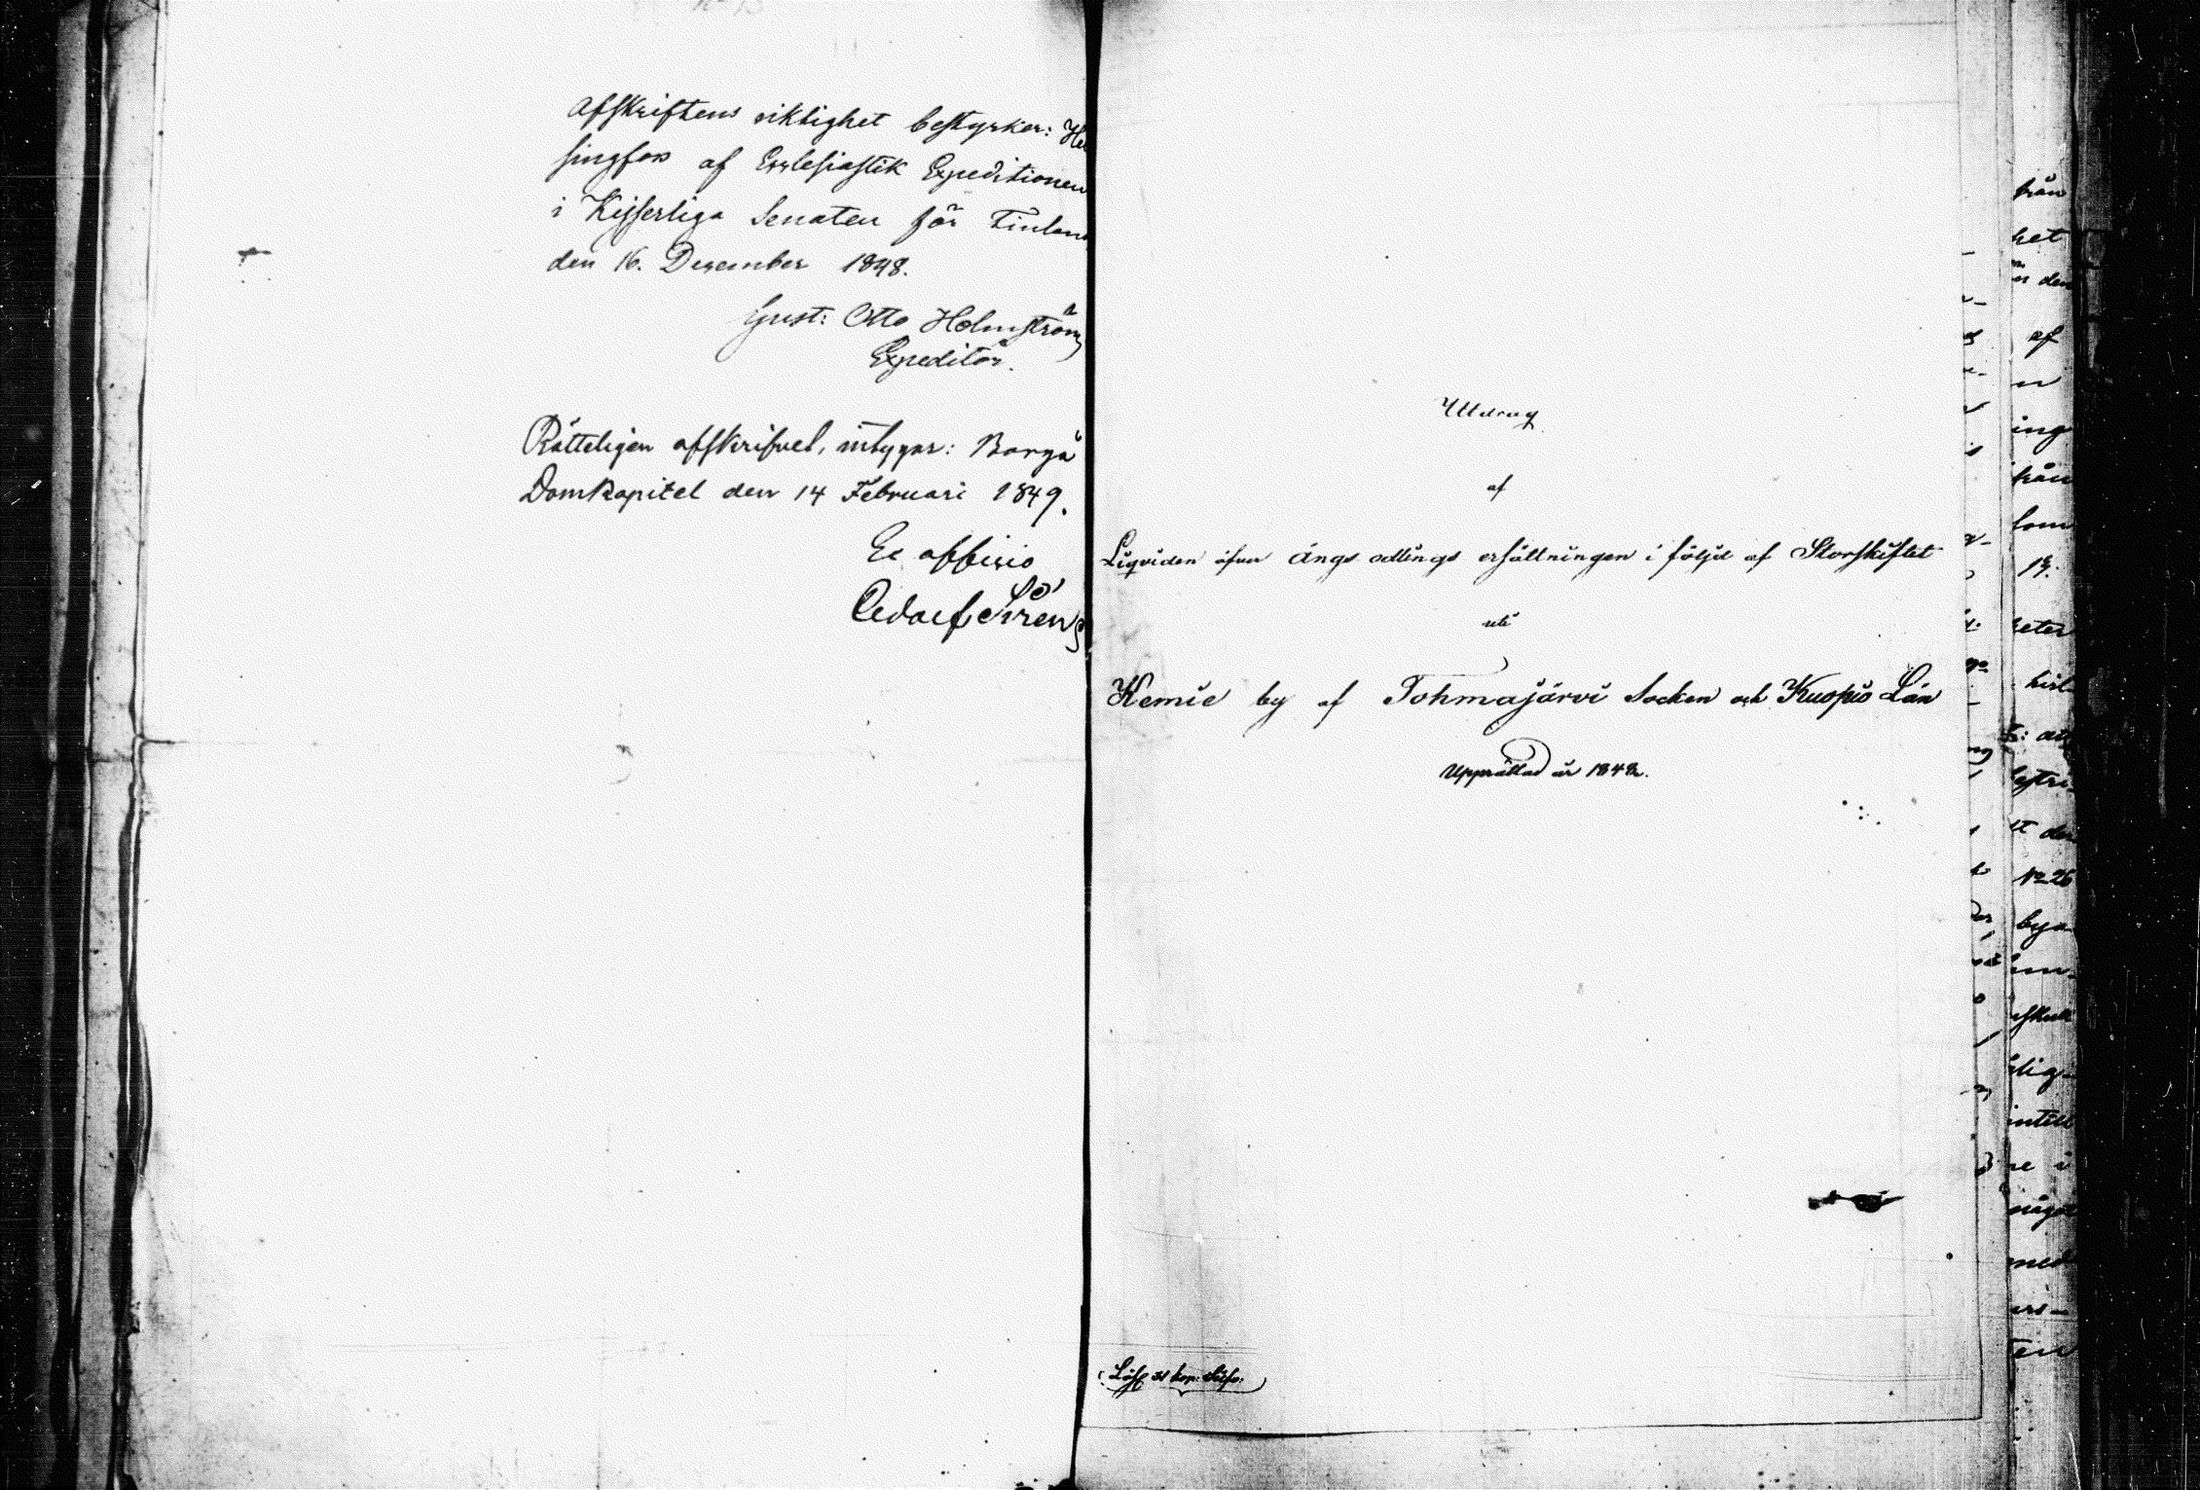 Afskriftens riktighet bestyrker: Hel
singfors af Ecclesiastik Expeditionen
i Kejserliga Senaten för Finland
den 16. December 1848.
Gust: Otto Holmström
Expeditör.
Rätteligen afskrifvet, intygar: Borgå
Domkapitel den 14 Februari 1849.
Ex officio
Sirén
Utdrag
af
Liqviden öfver ängs odlings ersättningen i följd af Storskiftet
uti
Kemie by af Tohmajärvi Socken och Kuopio Län
Upprättad år 1842.
från
ket
den
af
n
ing
från
som
13.
keter
N:o 26
bya
lig-
intill
re i
något
med
ers-
ten